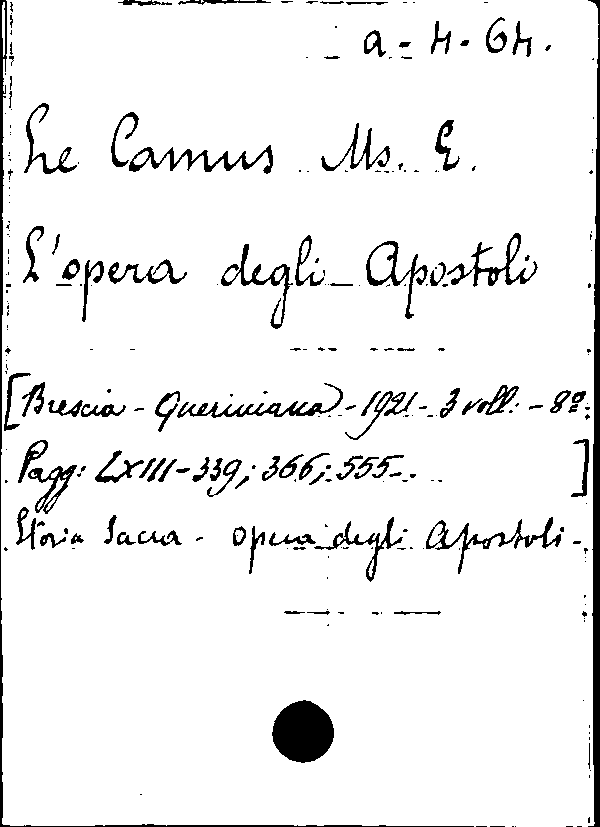 a - 4 - 64.
Le Camus Ms. E.
L'opera degli Apostoli
[Brescia - Queriniana - 1921 - 3 voll: - 8º:
Pagg: LXIII - 339; 366; 555 - . ]
Storia Sacra - Opera degli Apostoli -